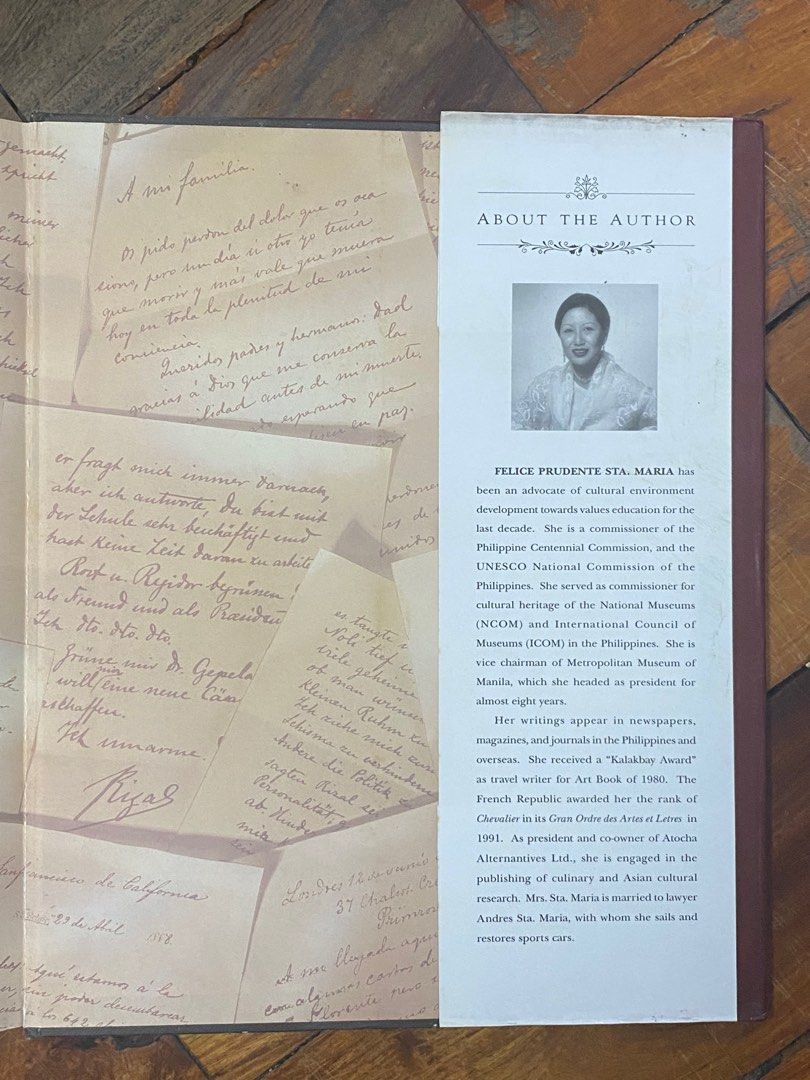 gemacht,
spricht
meiner
Ich
A mi familia.
Os pido perdon del dolor que os oca
siono, pero un dia ú otro yo tenía
que morir y más vale que muera
hoy en toda la plenitud de mi
conciencia.
Queridos padres y hermanos: Dad
gracias á Dios que me conserva la
ilidad antes de mi muerte.
esperando que
en paz.
er fragt mich immer darnach,
aber ich antworte, Du bist mit
der Schule sehr beschäftigt und
hast keine Zeit daran zu arbeite
Rost u. Regidor begrüssen
als Freund und als Praesiden
Ich dto. dto. dto
will mir eine neue
schaffen.
Ich umarme.
Rizal
es taugte
Noli tief
viele geheime
ob man
kleinen Ruhm zu
Ich ziehe mich
Schisma zu verhindern
Andere die Politik
sagten Rizal
Personalität
ab.
mir
Sanfrancisco de California
29 de Abil 1888.
Aquí estamos á la
sin poder desembarcar
á los 642
Londres 12 de Junio
37 Chalcot Cre
Primros
A mi llegada aquí
con algunas cartas de
Florente pero
ABOUT THE AUTHOR
FELICE PRUDENTE STA. MARIA has
been an advocate of cultural environment
development towards values education for the
last decade. She is a commissioner of the
Philippine Centennial Commission, and the
UNESCO National Commission of the
Philippines. She served as commissioner for
cultural heritage of the National Museums
(NCOM) and International Council of
Museums (ICOM) in the Philippines. She is
vice chairman of Metropolitan Museum of
Manila, which she headed as president for
almost eight years.
Her writings appear in newspapers,
magazines, and journals in the Philippines and
overseas. She received a “Kalakbay Award”
as travel writer for Art Book of 1980. The
French Republic awarded her the rank of
Chevalier in its Gran Ordre des Artes et Letres in
1991. As president and co-owner of Atocha
Alternantives Ltd., she is engaged in the
publishing of culinary and Asian cultural
research. Mrs. Sta. Maria is married to lawyer
Andres Sta. Maria, with whom she sails and
restores sports cars.